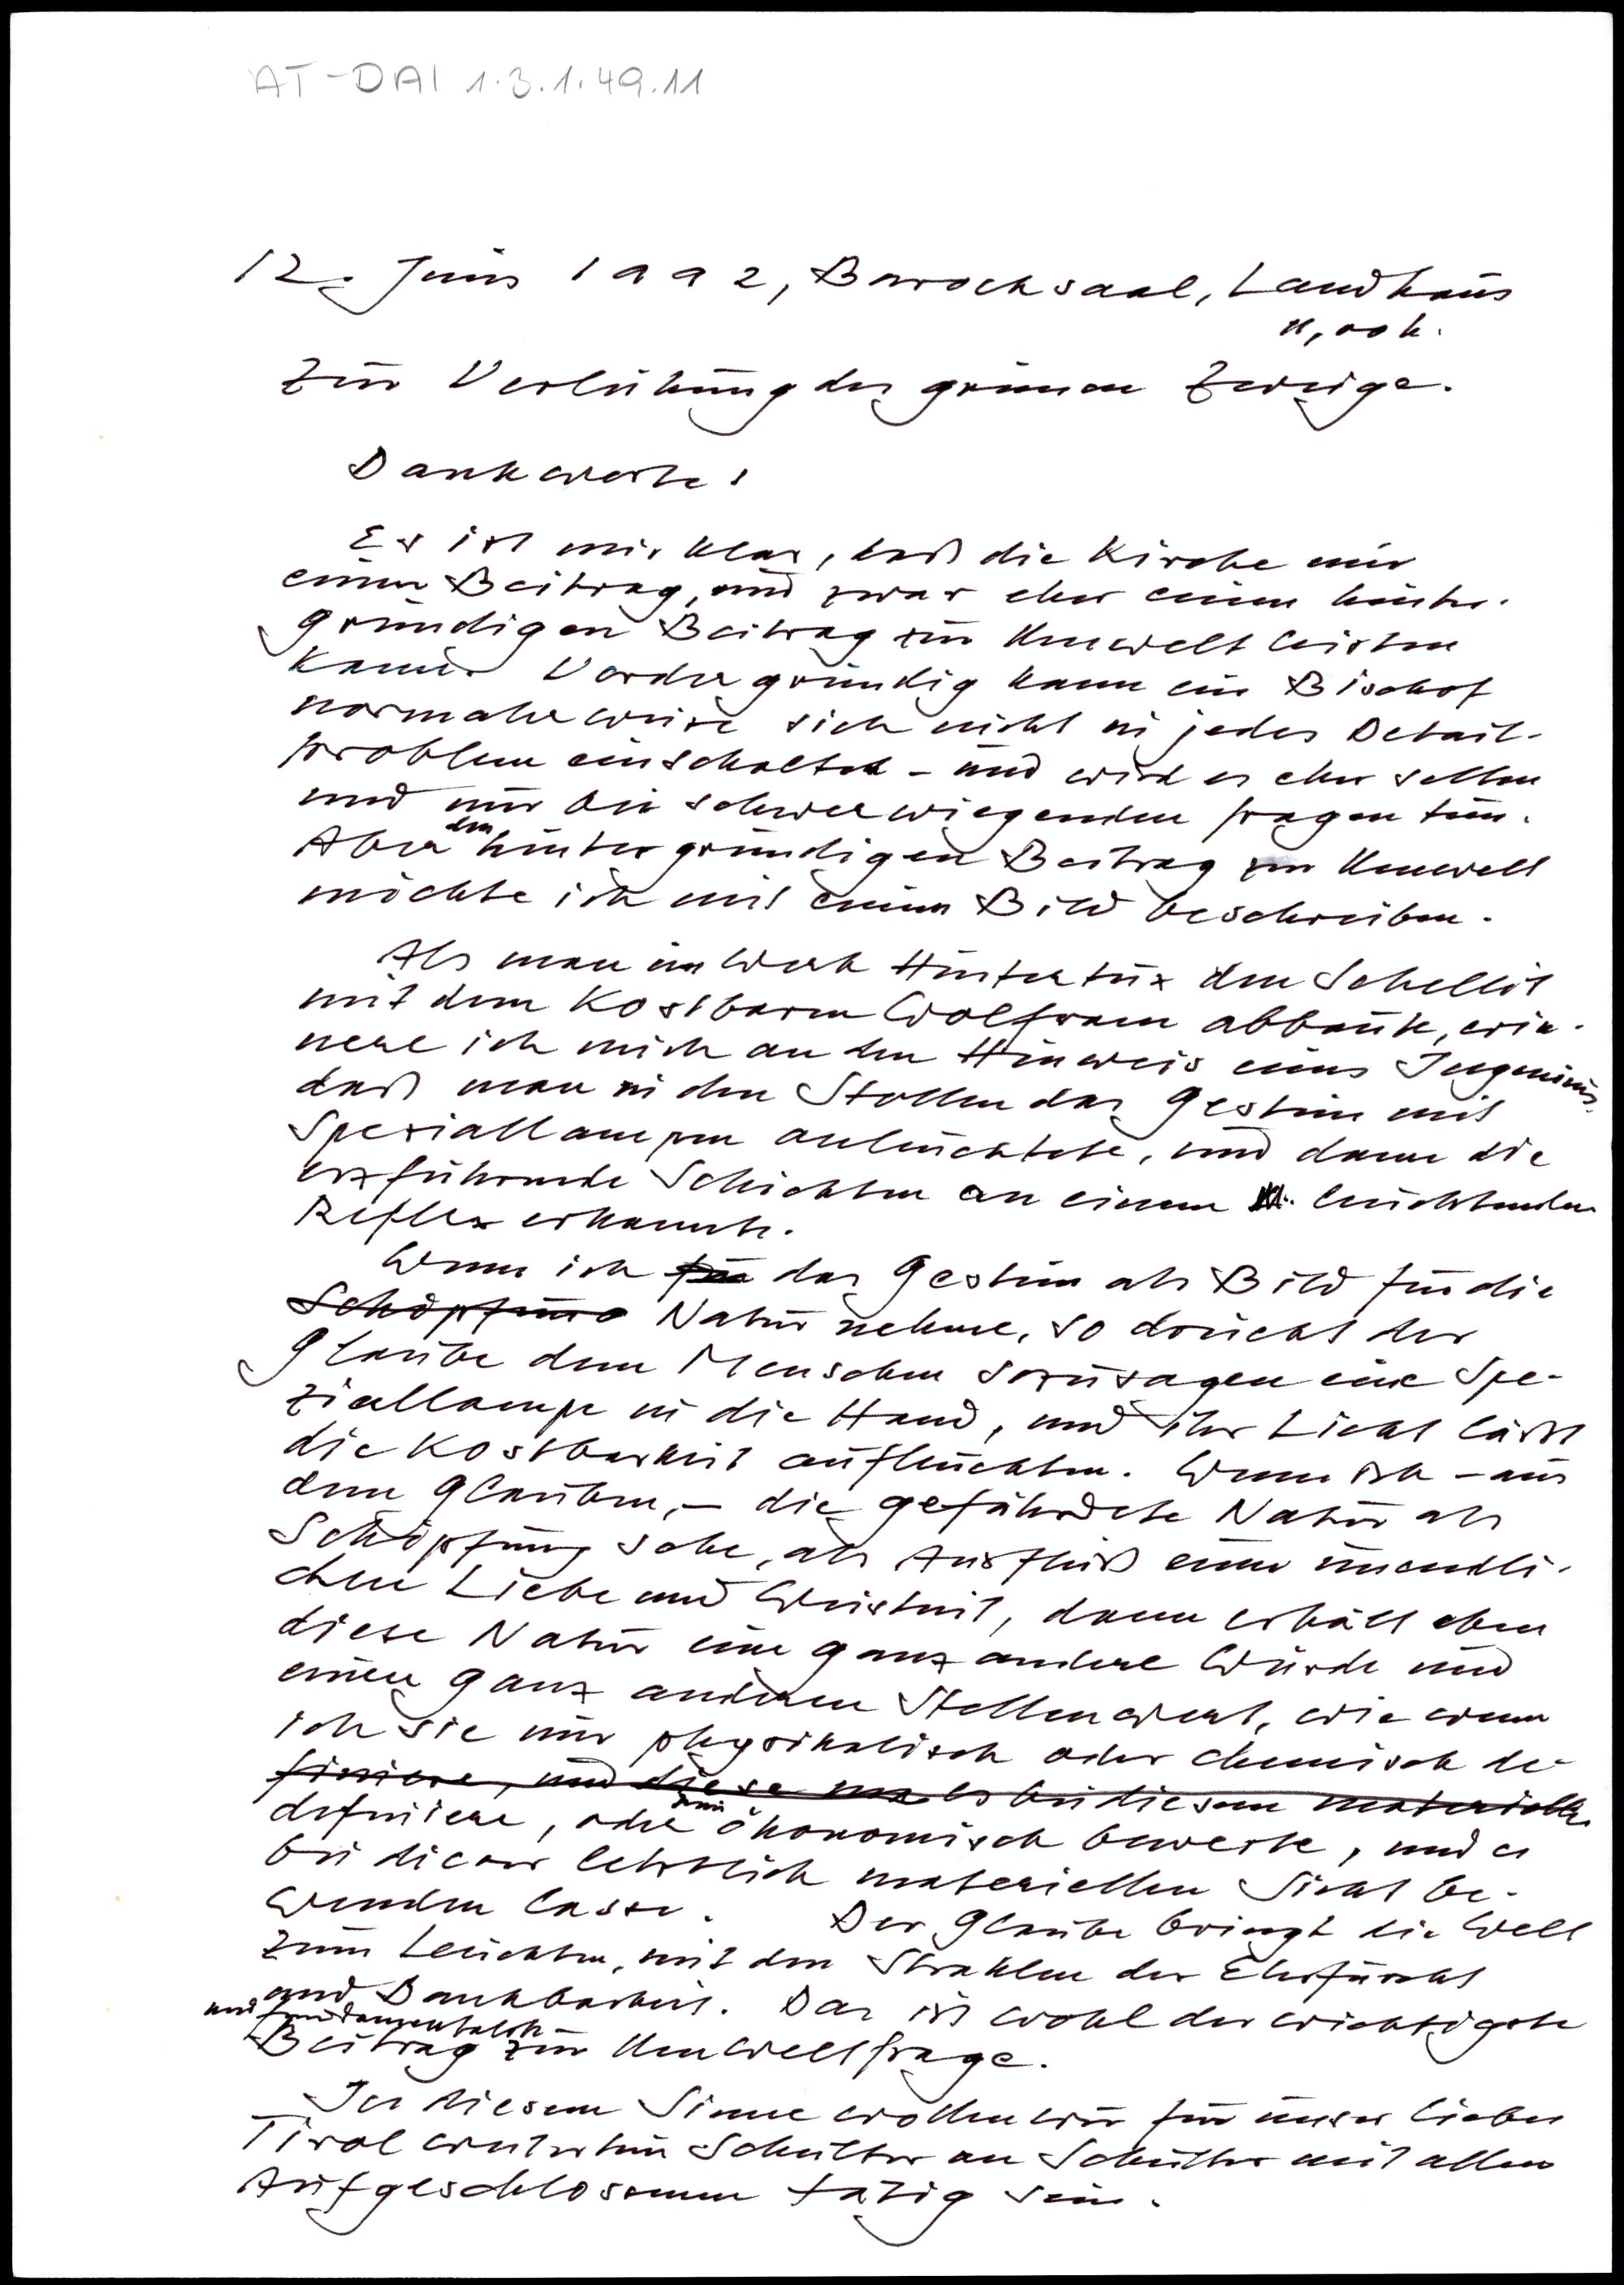 AT-DAI 1.3.1.49.11
12. Juni 1992, Barocksaal, Landhaus
11,00 h.
Zur Verleihung des grünen Zweiges.
Dankworte:
Es ist mir klar, daß die Kirche nur
einen Beitrag, und zwar eher einen hinter-
gründigen Beitrag zur Umwelt leisten
kann. Vordergründig kann ein Bischof
normalerweise sich nicht in jedes Detail-
problem einschalten - und wird es eher selten
und nur bei schwerwiegenden Fragen tun.
Aber den hintergründigen Beitrag zur Umwelt
möchte ich mit einem Bild beschreiben.
Als man im Werk Hintertux den Schellit
mit dem kostbaren Wolfram abbaute, erin-
nere ich mich an den Hinweis eines Ingenieurs,
daß man in den Stollen das Gestein mit
Speziallampen anleuchtete, und dann die
erzführende Schichten an einem leuchtenden
Reflex erkannte.
Wenn ich für das Gestein als Bild für die
Schöpfung Natur nehme, so drückt der
Glaube dem Menschen sozusagen eine Spe-
ziallampe in die Hand, und ihr Licht läßt
die Kostbarkeit aufleuchten. Wenn ich - aus
dem Glauben, - die gefährdete Natur als
Schöpfung sehe, als Ausfluß einer unendli-
chen Liebe und Weisheit, dann erhält eben
diese Natur eine ganz andere Würde und
einen ganz anderen Stellenwert, wie wenn
ich sie nur physikalisch oder chemisch de-
finiere, und diese es bei diesem materielle
definiere, oder nur ökonomisch bewerte, und es
bei dieser letztlich materiellen Sicht be-
wenden lasse. Der Glaube bringt die Welt
zum Leuchten, mit den Strahlen der Ehrfurcht
und Dankbarkeit. Das ist wohl der wichtigste
und fundamentalste
Beitrag zur Umweltfrage.
In diesem Sinne wollen wir für unser liebes
Tirol weiterhin Schulter an Schulter mit allen
Aufgeschlossenen tätig sein.